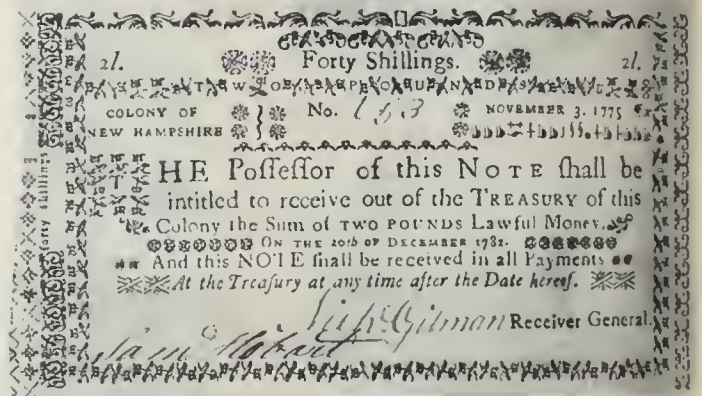 2l. Forty Shillings. 2l.
T W O P O U N D S
COLONY OF NEW HAMPSHIRE No. 153 NOVEMBER 3. 1775
THE Poſſeſſor of this NOTE ſhall be
intitled to receive out of the TREASURY of this
Colony the Sum of TWO POUNDS Lawful Money,
ON THE 20th OF DECEMBER 1782.
And this NOTE ſhall be received in all Payments
At the Treaſury at any time after the Date hereof.
Nichs Gilman Receiver General.
Sam Hobart
forty shillings